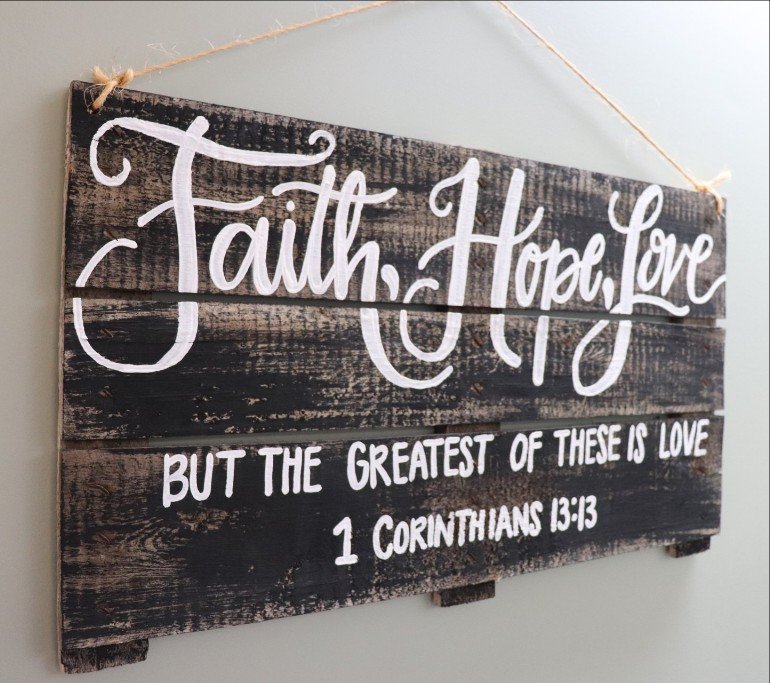 Faith, Hope, Love
BUT THE GREATEST OF THESE IS LOVE
1 CORINTHIANS 13:13